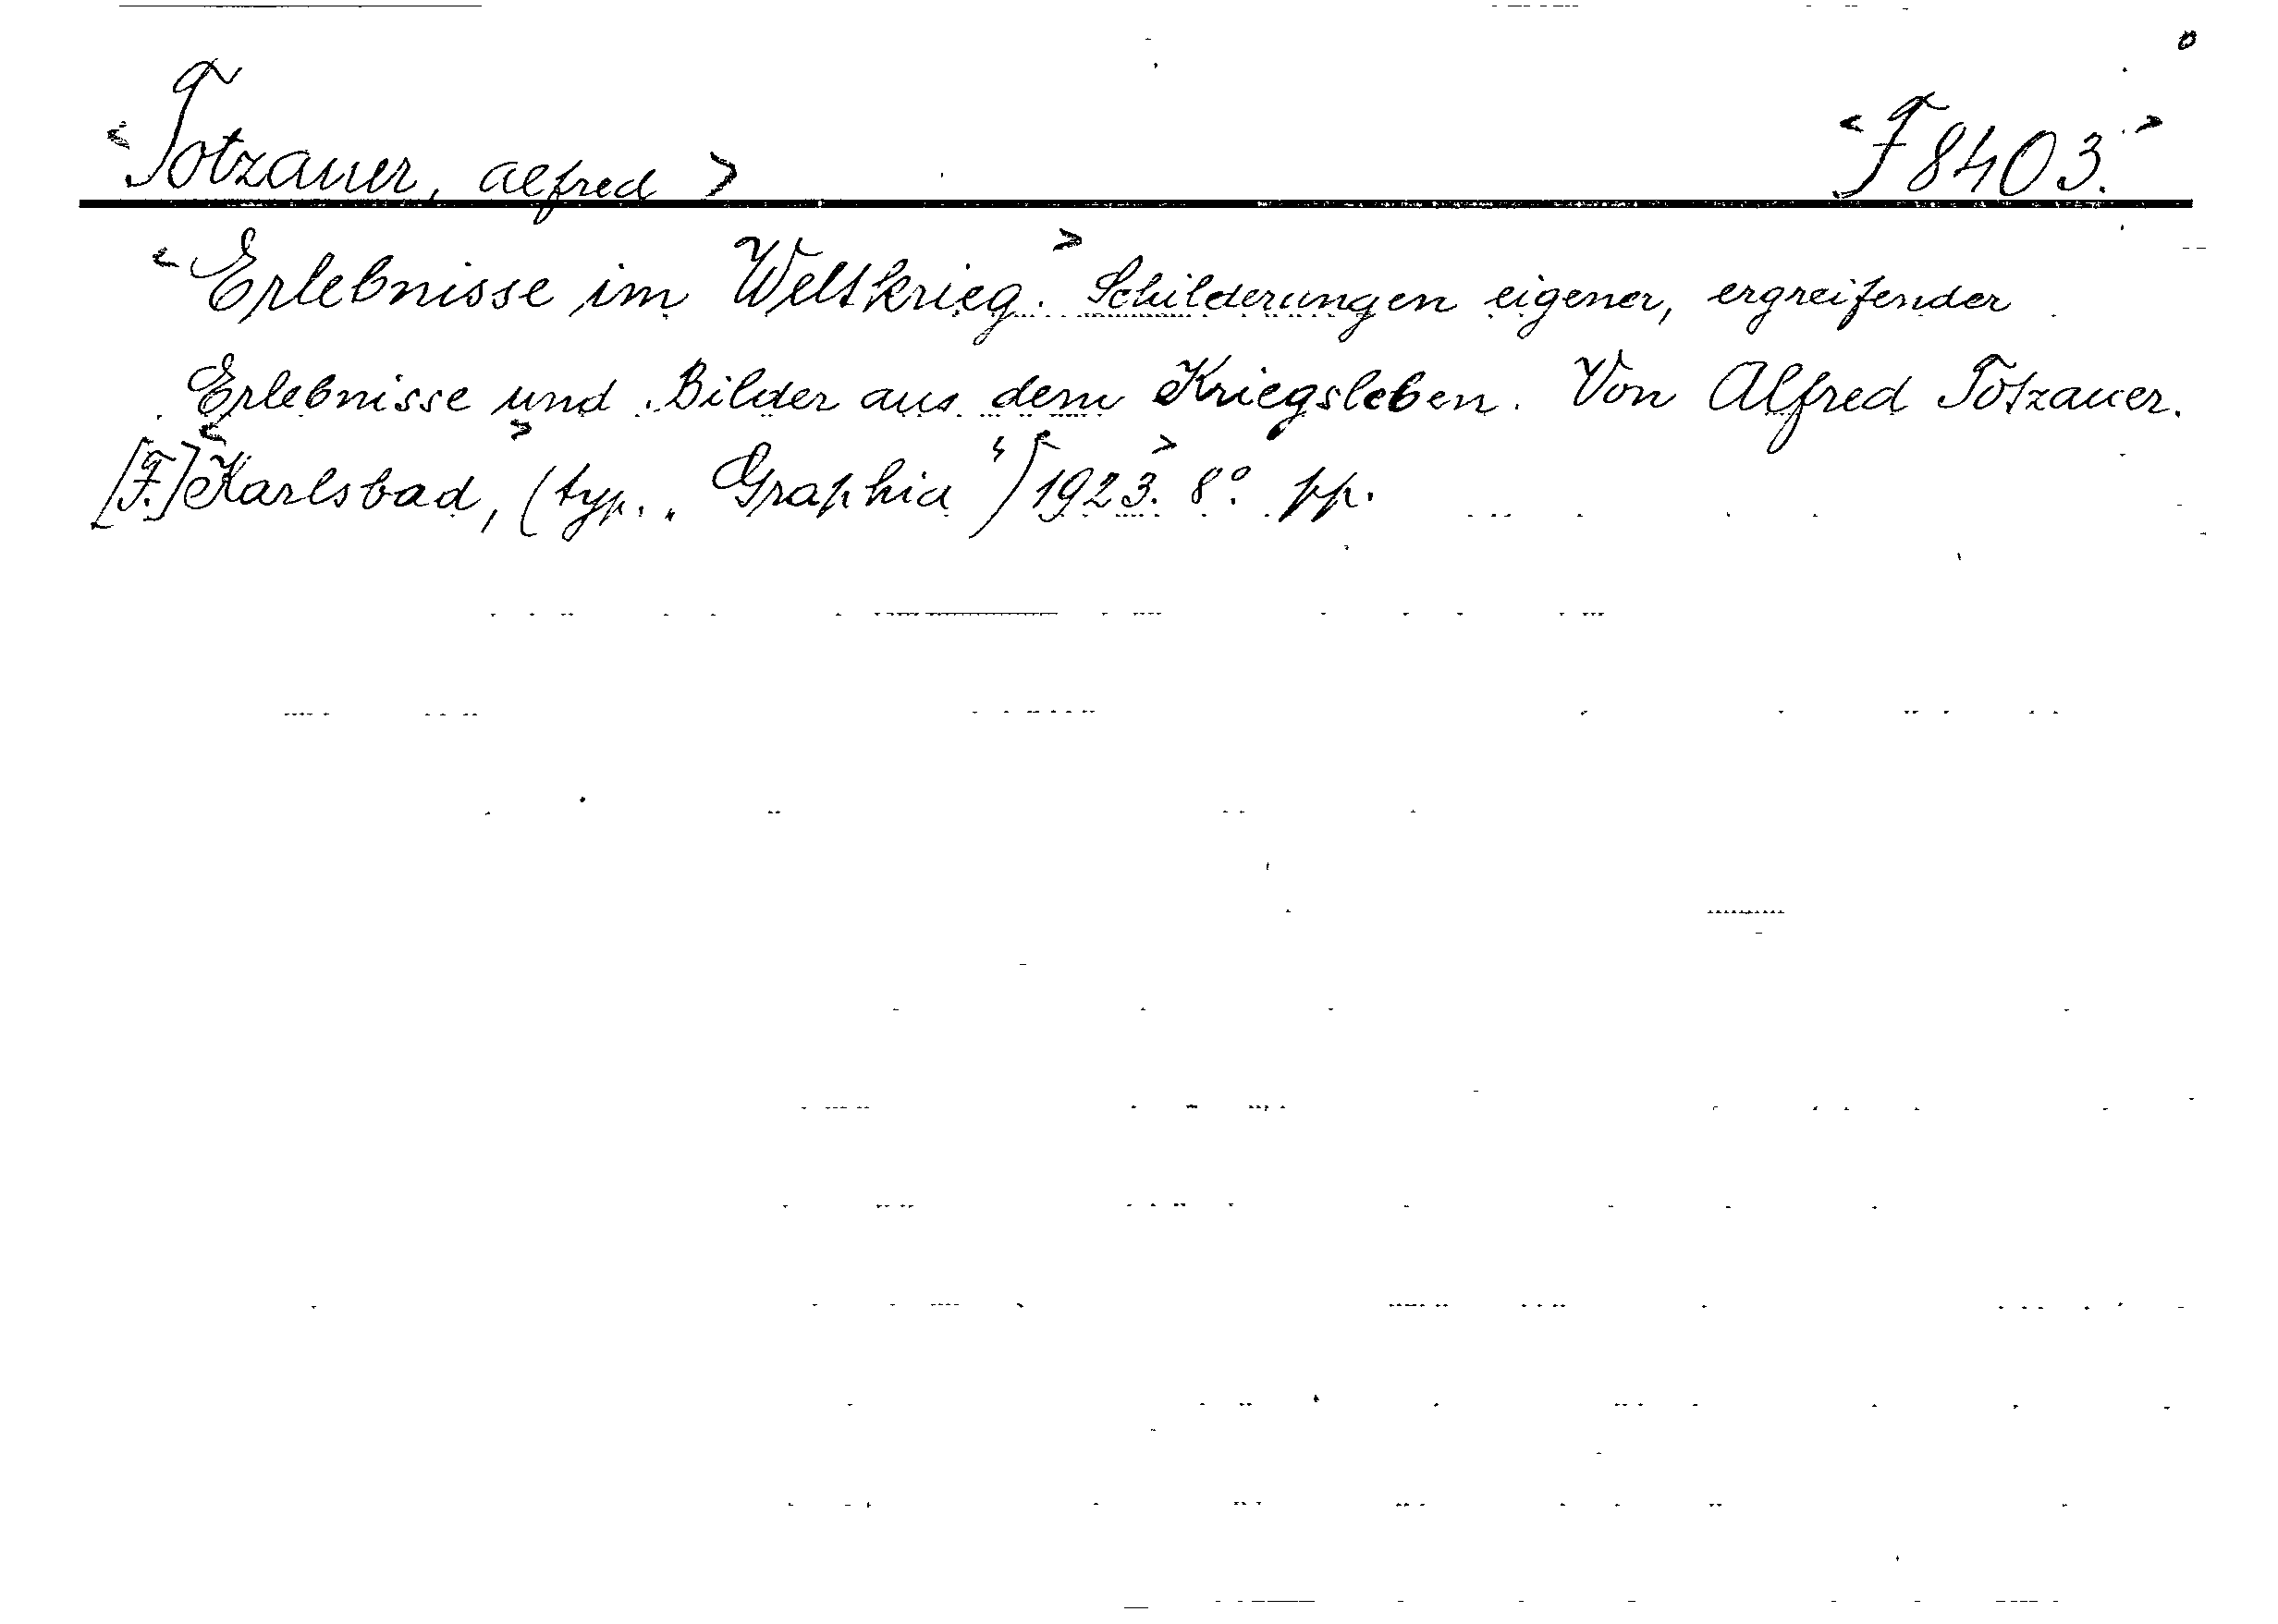 <Totzauer, Alfred> <F 8403.>
<Erlebnisse im Weltkrieg.> Schilderungen eigener, ergreifender
Erlebnisse und Bilder aus dem Kriegsleben. Von Alfred Totzauer.
[F.] <Karlsbad,> (typ. „Graphia“) <1923.> 8°. pp.